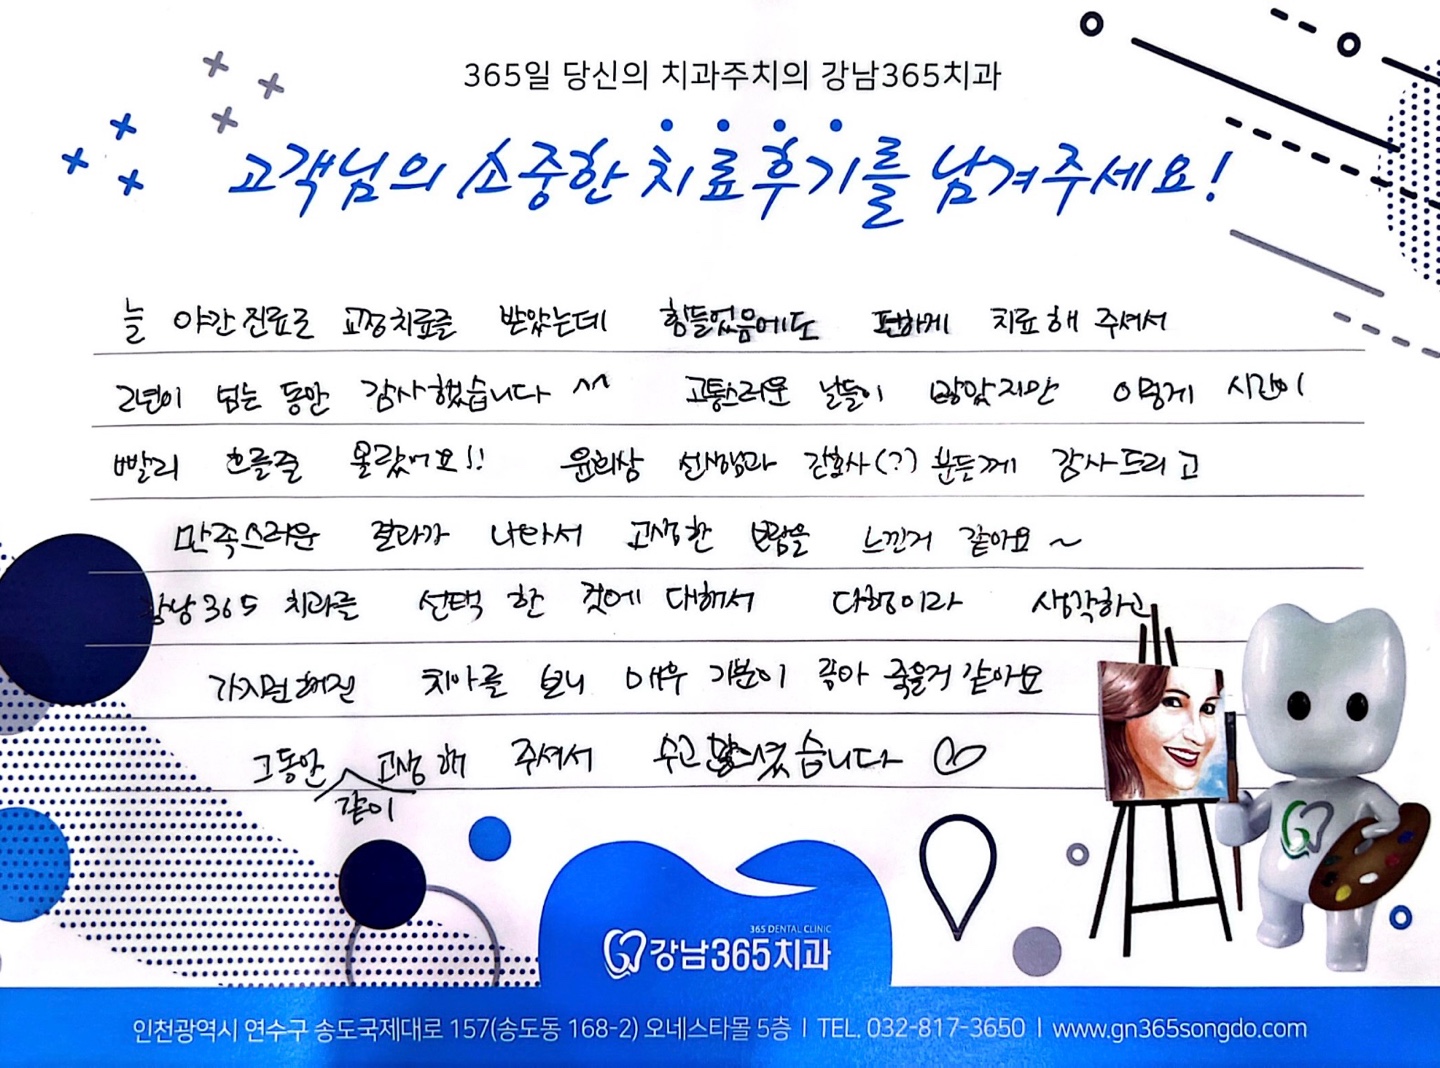 365일 당신의 치과주치의 강남365치과
고객님의 소중한 치료후기를 남겨주세요!
늘 야간진료로 교정치료를 받았는데 힘들었음에도 편하게 치료해 주셔서
2년이 넘는 동안 감사했습니다 ^^ 고통스러운 날들이 많았지만 이렇게 시간이
빨리 흐를줄 몰랐어요!! 윤희상 선생님과 간호사(?)분들께 감사드리고
만족스러운 결과가 나와서 고생한 보람을 느낀거 같아요~
강남365 치과를 선택 한 것에 대해서 다행이라 생각하고
가지런해진 치아를 보니 매우 기분이 좋아 죽을거 같아요
그동안 같이 고생 해 주셔서 수고 많으셨습니다 ♡
365 DENTAL CLINIC
강남365치과
인천광역시 연수구 송도국제대로 157(송도동 168-2) 오네스타몰 5층 | TEL. 032-817-3650 | www.gn365songdo.com